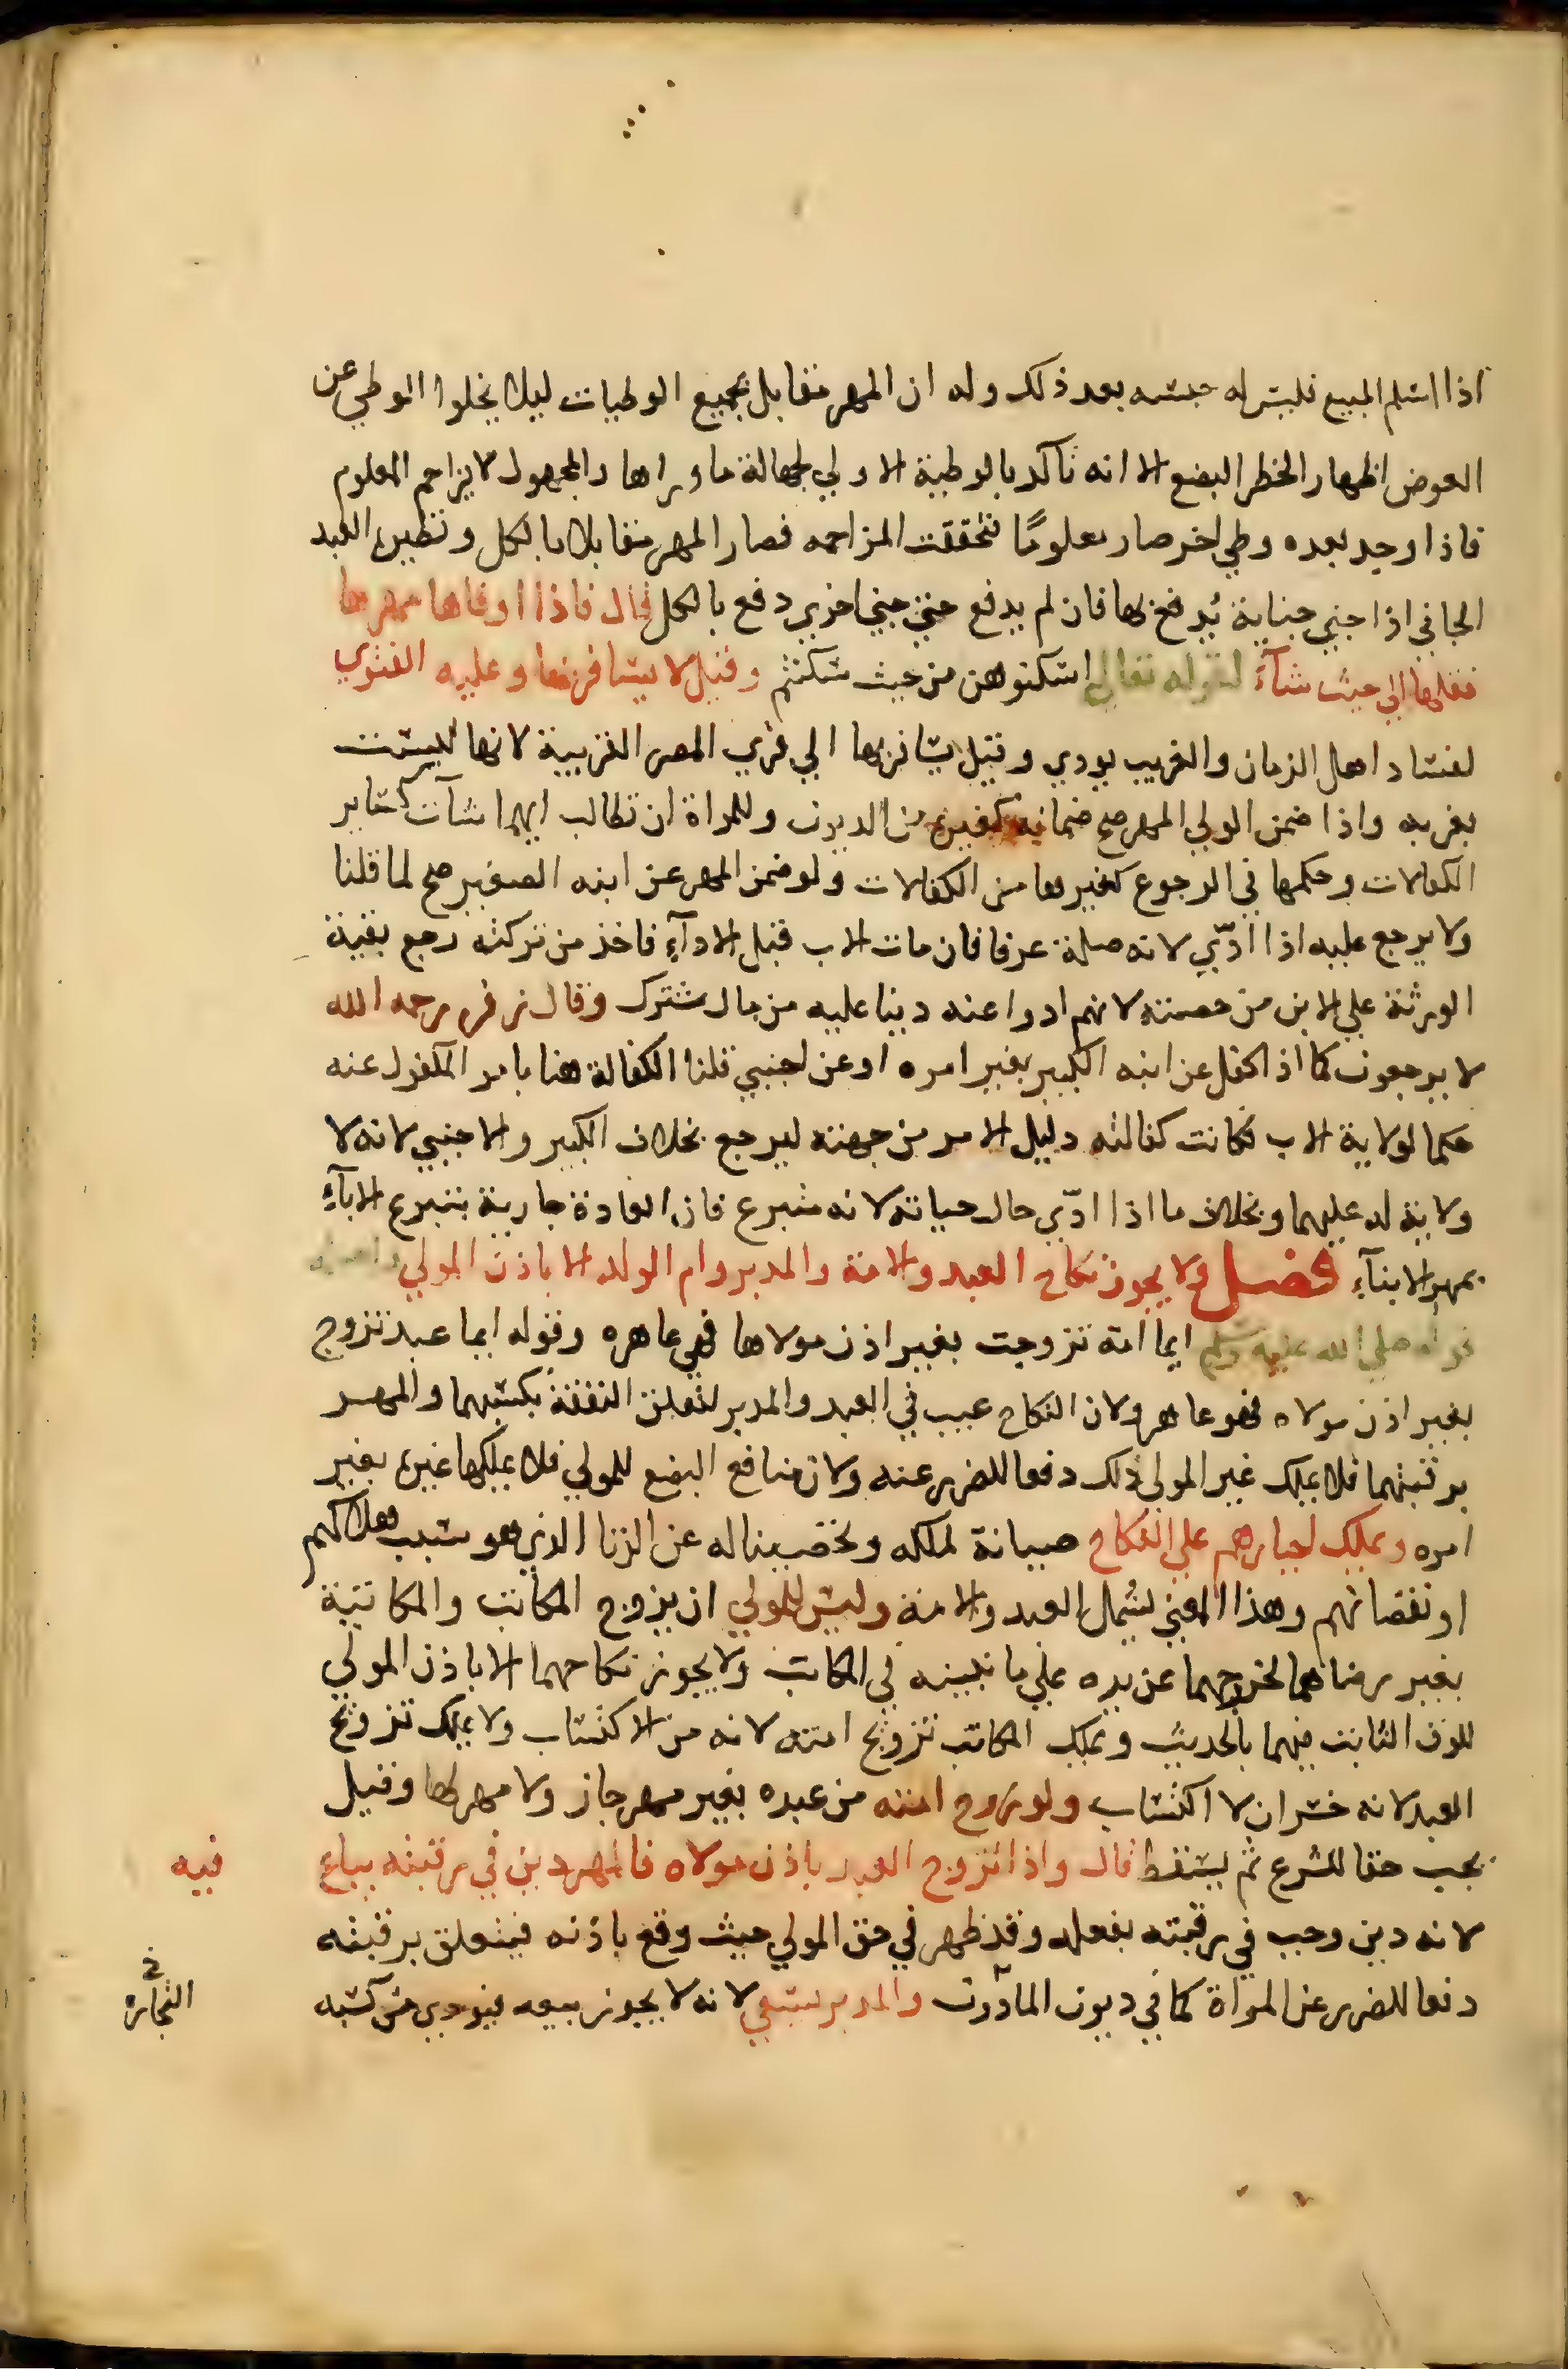 اذا اسلم المبيع فليس له حبسه بعد ذلك وله ان المهر مقابل بجميع الوطيات ليلا يخلوا الوطي عن
العوض اظهار الخطر البضع الا انه تاكد بالوطية الاولي لجهالة ما وراها والمجهول لا يزاحم المعلوم
فاذا وجد بعده وطي اخر صار معلومًا فتحققت المزاحمه فصار المهر مقابلا بالكل ونظيره العبد
الجاني اذا جني جناية يُدفع بها فان لم يدفع حتي جني اخري دفع بالكل قال فاذا اوفاها مهرها
نقلها الي حيث شآء لقوله تعالي اسكنوهن من حيث سكنتم وقيل لا يسافر بها وعليه الفتوي
لفساد اهل الزمان والغريب يودي وقيل يسافر بها الي قري المصر القريبية لانها ليست
بغربه واذا ضمن الولي المهر صح ضمانه كغيره من الديون وللمراة ان تطالب ايهما شآت كساير
الكفالات وحكمها في الرجوع كغيرها من الكفالات ولو ضمن المهر عن ابنه الصغير صح لما قلنا
ولا يرجع عليه اذا ادّي لانه صلة عرفا فان مات الاب قبل الادآءِ فاخذ من تركته رجع بقية
الورثة علي الابن من حصته لانهم ادوا عنه دينا عليه من مال مشترك وقال زفر رحمه الله
لا يرجعون كما اذا كفل عن ابنه الكبير بغير امره او عن اجنبي قلنا الكفالة هنا بامر المكفول عنه
حكما لولاية الاب فكانت كفالته دليل الامر من جهته ليرجع بخلاف الكبير والاجنبي لانه لا
ولاية له عليهما وبخلاف ما اذا ادّي حال حياته لانه متبرع فان العادة جارية بتبرع الابآءِ
بمهر الابنآءِ فصل ولا يجوز نكاح العبد والامة والمدبر وام الولد الا باذن المولي
قوله صلي الله عليه وسلم ايما امة تزوجت بغير اذن مولاها فهي عاهره وقوله ايما عبد تزوج
بغير اذن مولاه فهو عاهر ولان النكاح عيب في العبد والمدبر لتعلق النفقة بكسبهما والمهر
برقبتهما فلا يملك غير المولي ذلك دفعا للضرر عنه ولان منافع البضع للمولي فلا يملكها غيره بغير
امره ويملك اجبارهم علي النكاح صيانة لملكه وتحصيناله عن الزنا الذي هو سبب هلاكهم
او نقصانهم وهذا المعني يشمل العبد والامة وليس للمولي ان يزوج المكاتب والمكاتبة
بغير رضاهما لخروجهما عن يده علي ما نبينه في المكاتب ولا يجوز نكاحهما الا باذن المولي
للرق الثابت فيهما بالحديث ويملك المكاتب تزويج امته لانه من الاكتساب ولا يملك تزويج
العبد لانه خسران لا اكتساب ولو زوج امته من عبده بغير مهر جاز ولا مهر لها وقيل
يجب حقا للشرع ثم يسقط قال واذا تزوج العبد باذن مولاه فالمهر دين في رقبته يباع
فيه
لانه دين وجب في رقبته بفعله وقد ظهر في حق المولي حيث وقع باذنه فيتعلق برقبته
دفعا للضرر عن المراة كما في ديون الماذون والمدبر يسعي لانه لا يجوز بيعه فيودي من كسبه
في
التجاره